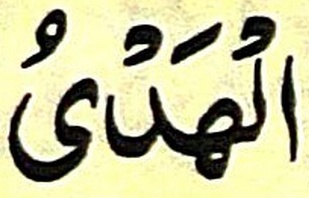 الْهَدْىُ